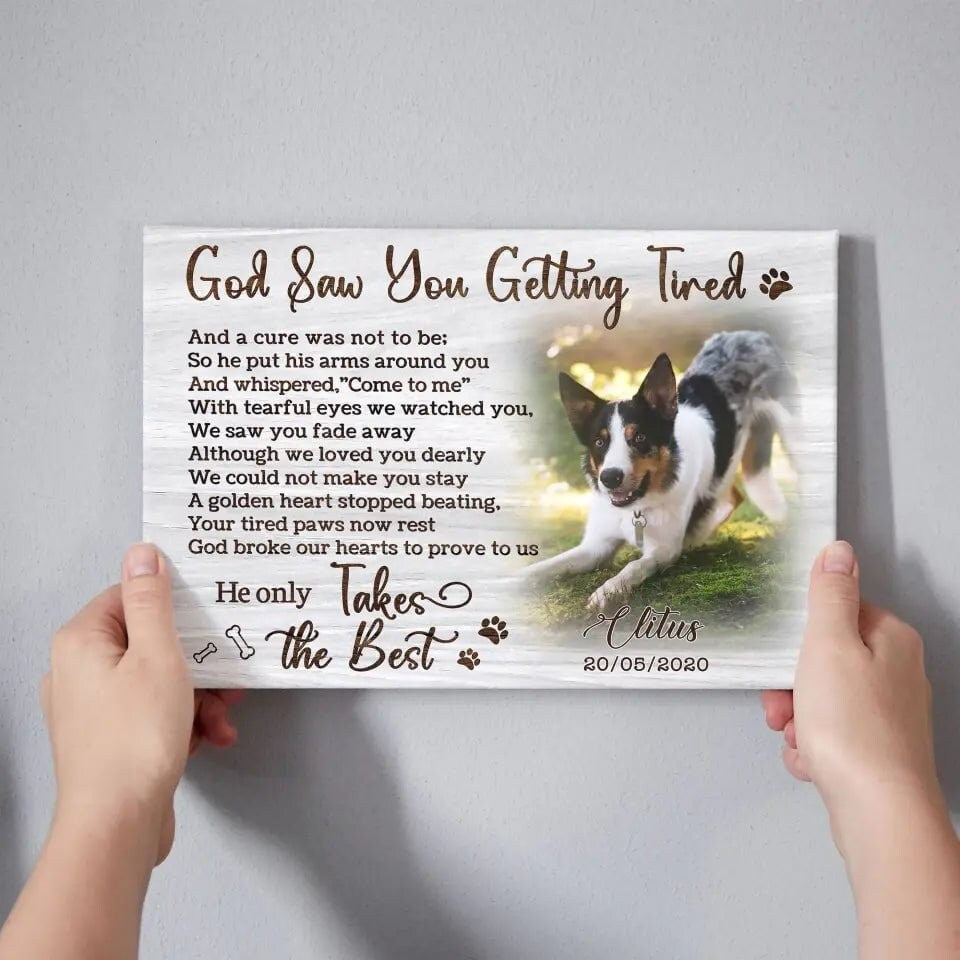 God Saw You Getting Tired
And a cure was not to be;
So he put his arms around you
And whispered,”Come to me”
With tearful eyes we watched you,
We saw you fade away
Although we loved you dearly
We could not make you stay
A golden heart stopped beating,
Your tired paws now rest
God broke our hearts to prove to us
He only Takes
the Best
Clitus
20/05/2020